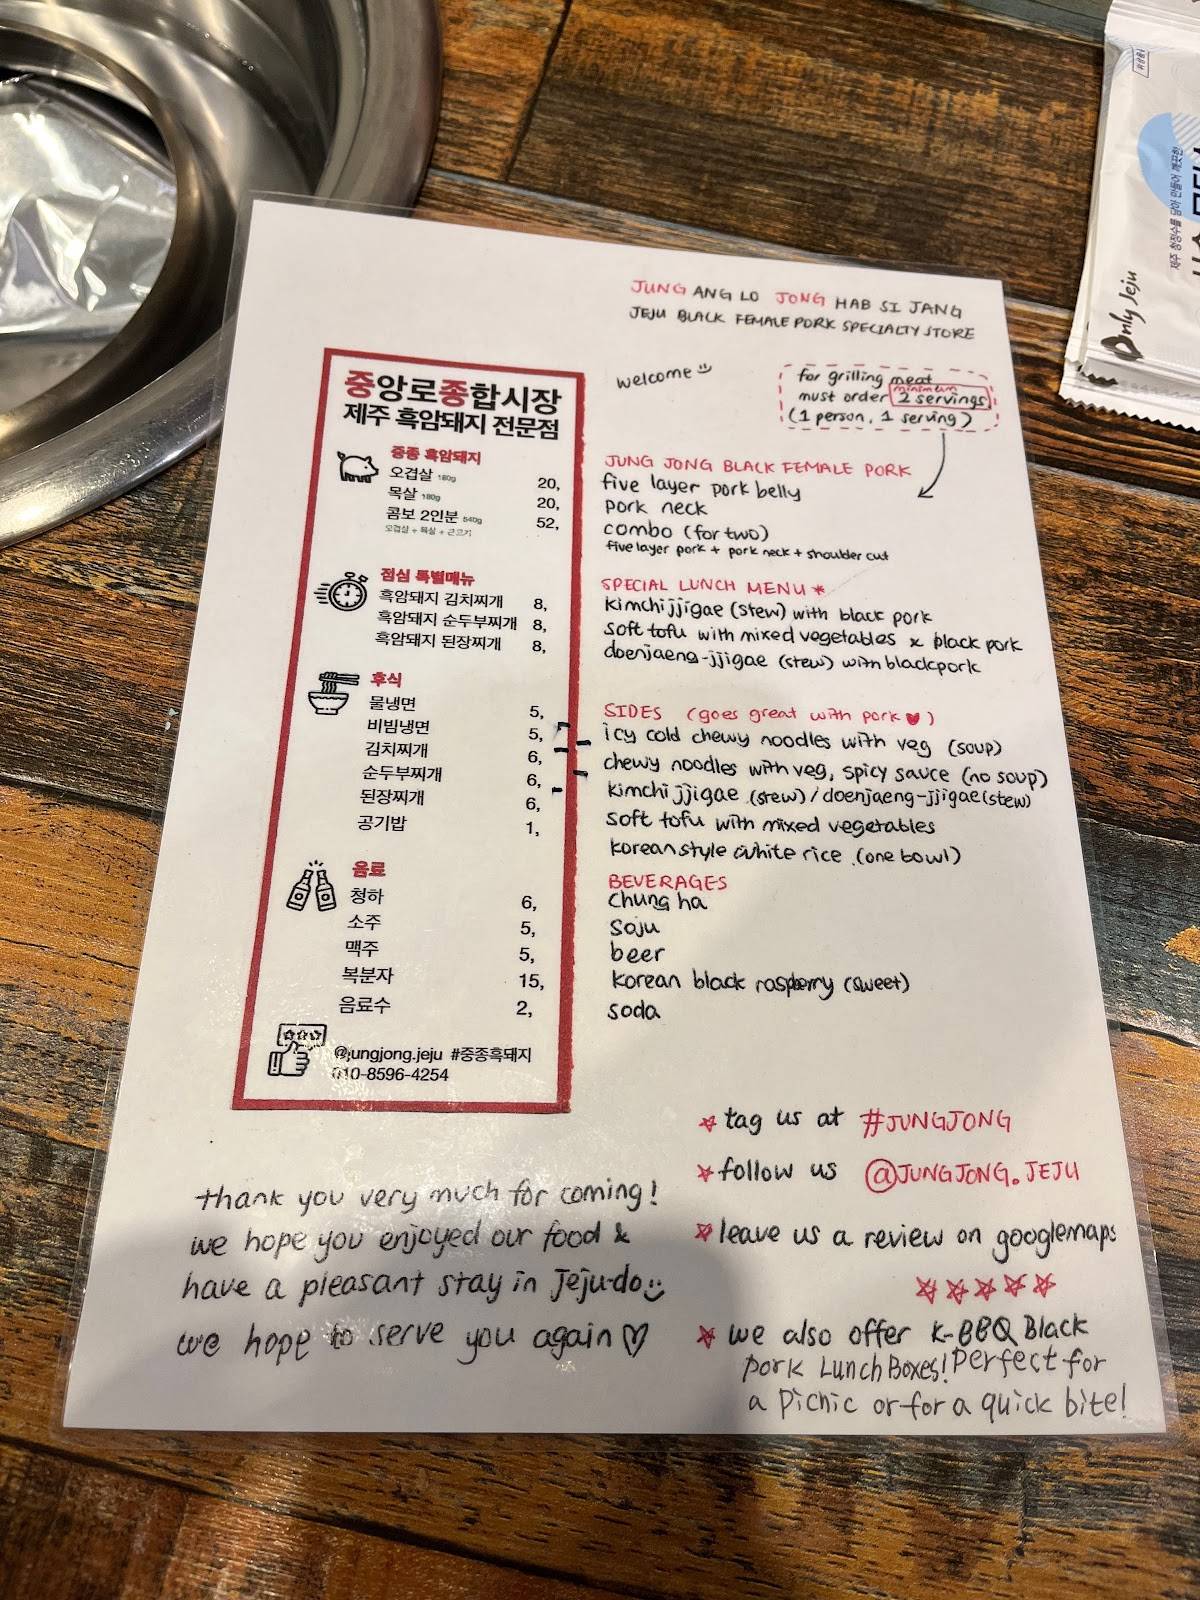 JUNG ANG LO JONG HAB SI JANG
JEJU BLACK FEMALE PORK SPECIALTY STORE
welcome
for grilling meat
minimum
must order 2 servings
(1 person, 1 serving)
중앙로종합시장
제주 흑암돼지 전문점
중종 흑암돼지
오겹살 180g 20,
목살 180g 20,
콤보 2인분 540g 52,
오겹살 + 목살 + 근고기
점심 특별메뉴
흑암돼지 김치찌개 8,
흑암돼지 순두부찌개 8,
흑암돼지 된장찌개 8,
후식
물냉면 5,
비빔냉면 5,
김치찌개 6,
순두부찌개 6,
된장찌개 6,
공기밥 1,
음료
청하 6,
소주 5,
맥주 5,
복분자 15,
음료수 2,
@jungjong.jeju #중종흑돼지
010-8596-4254
JUNG JONG BLACK FEMALE PORK
five layer pork belly
pork neck
combo (for two)
five layer pork + pork neck + shoulder cut
SPECIAL LUNCH MENU *
kimchi jjigae (stew) with black pork
soft tofu with mixed vegetables & black pork
doenjaeng-jjigae (stew) with blackpork
SIDES (goes great with pork ♥)
icy cold chewy noodles with veg (soup)
chewy noodles with veg, spicy sauce (no soup)
kimchi jjigae (stew) / doenjaeng-jjigae (stew)
soft tofu with mixed vegetables
korean style white rice (one bowl)
BEVERAGES
chung ha
soju
beer
korean black raspberry (sweet)
soda
☆ tag us at #JUNGJONG
☆ follow us @JUNGJONG.JEJU
☆ leave us a review on googlemaps
☆☆☆☆☆
☆ we also offer K-BBQ Black
pork Lunch Boxes! Perfect for
a Picnic or for a quick bite!
thank you very much for coming!
we hope you enjoyed our food &
have a pleasant stay in Jeju-do
we hope to serve you again ♡
Only Jeju
제주 청정수를 담아 만들어 깨끗한